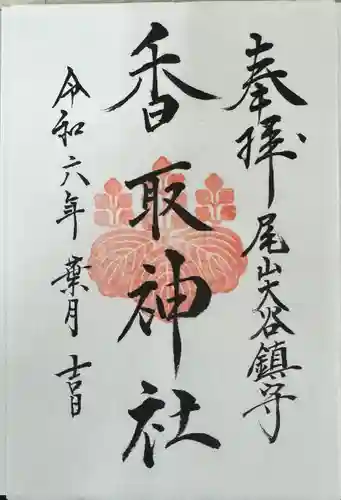 奉拝
尾山大谷鎮守
香取神社
令和六年葉月吉日